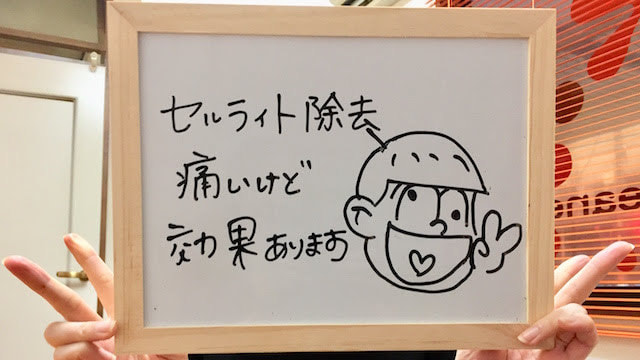 セルライト除去
痛いけど
効果あります